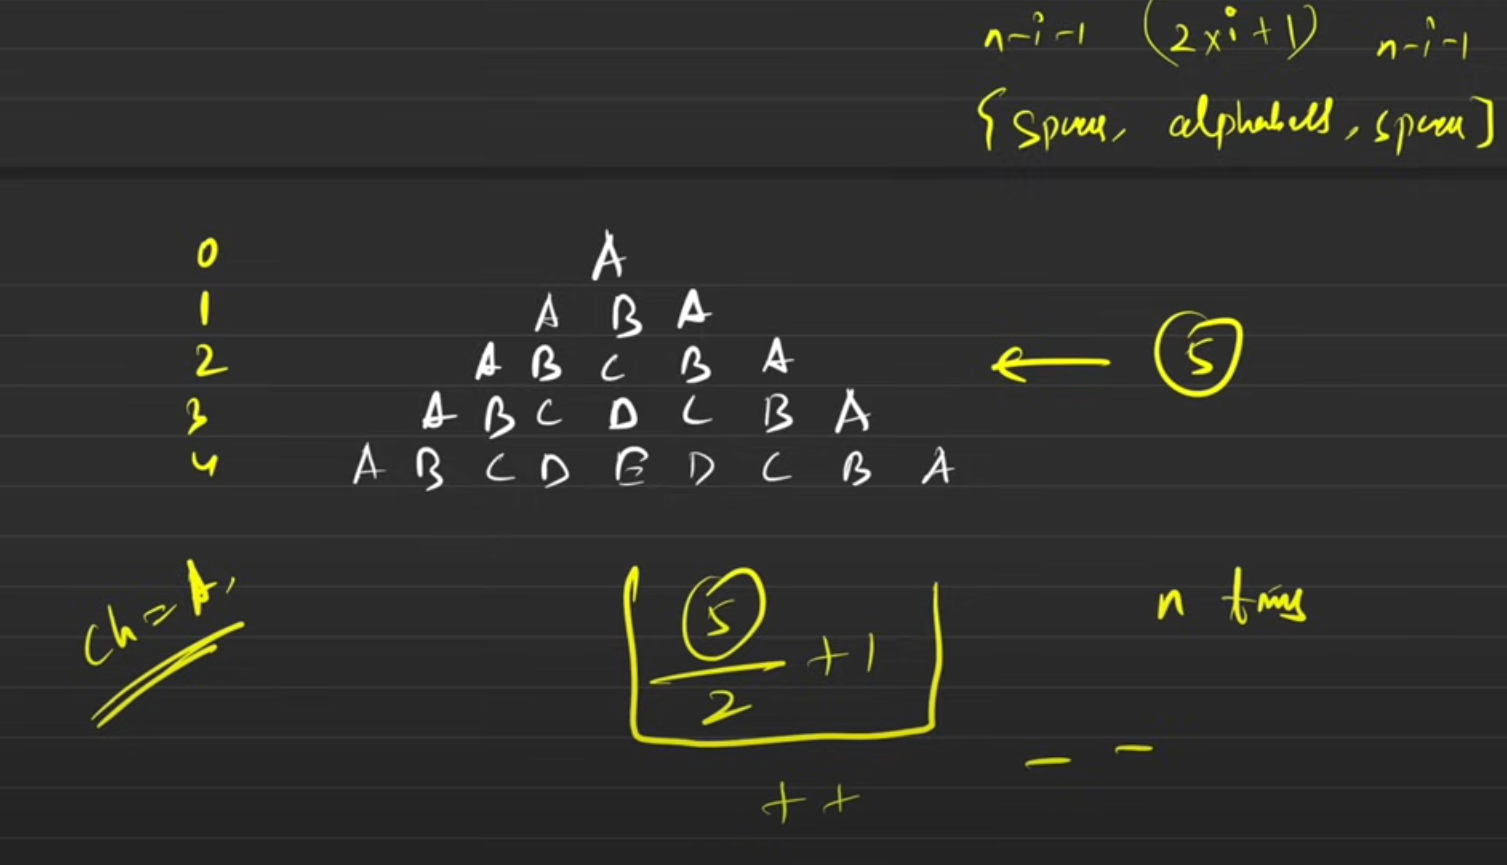 n-i-1 (2xi+1) n-i-1
{ space, alphabets, space ]
0 A
1 A B A
2 A B C B A
3 A B C D C B A
4 A B C D E D C B A
← 5
ch = A,
5/2 + 1
n times
++
- -